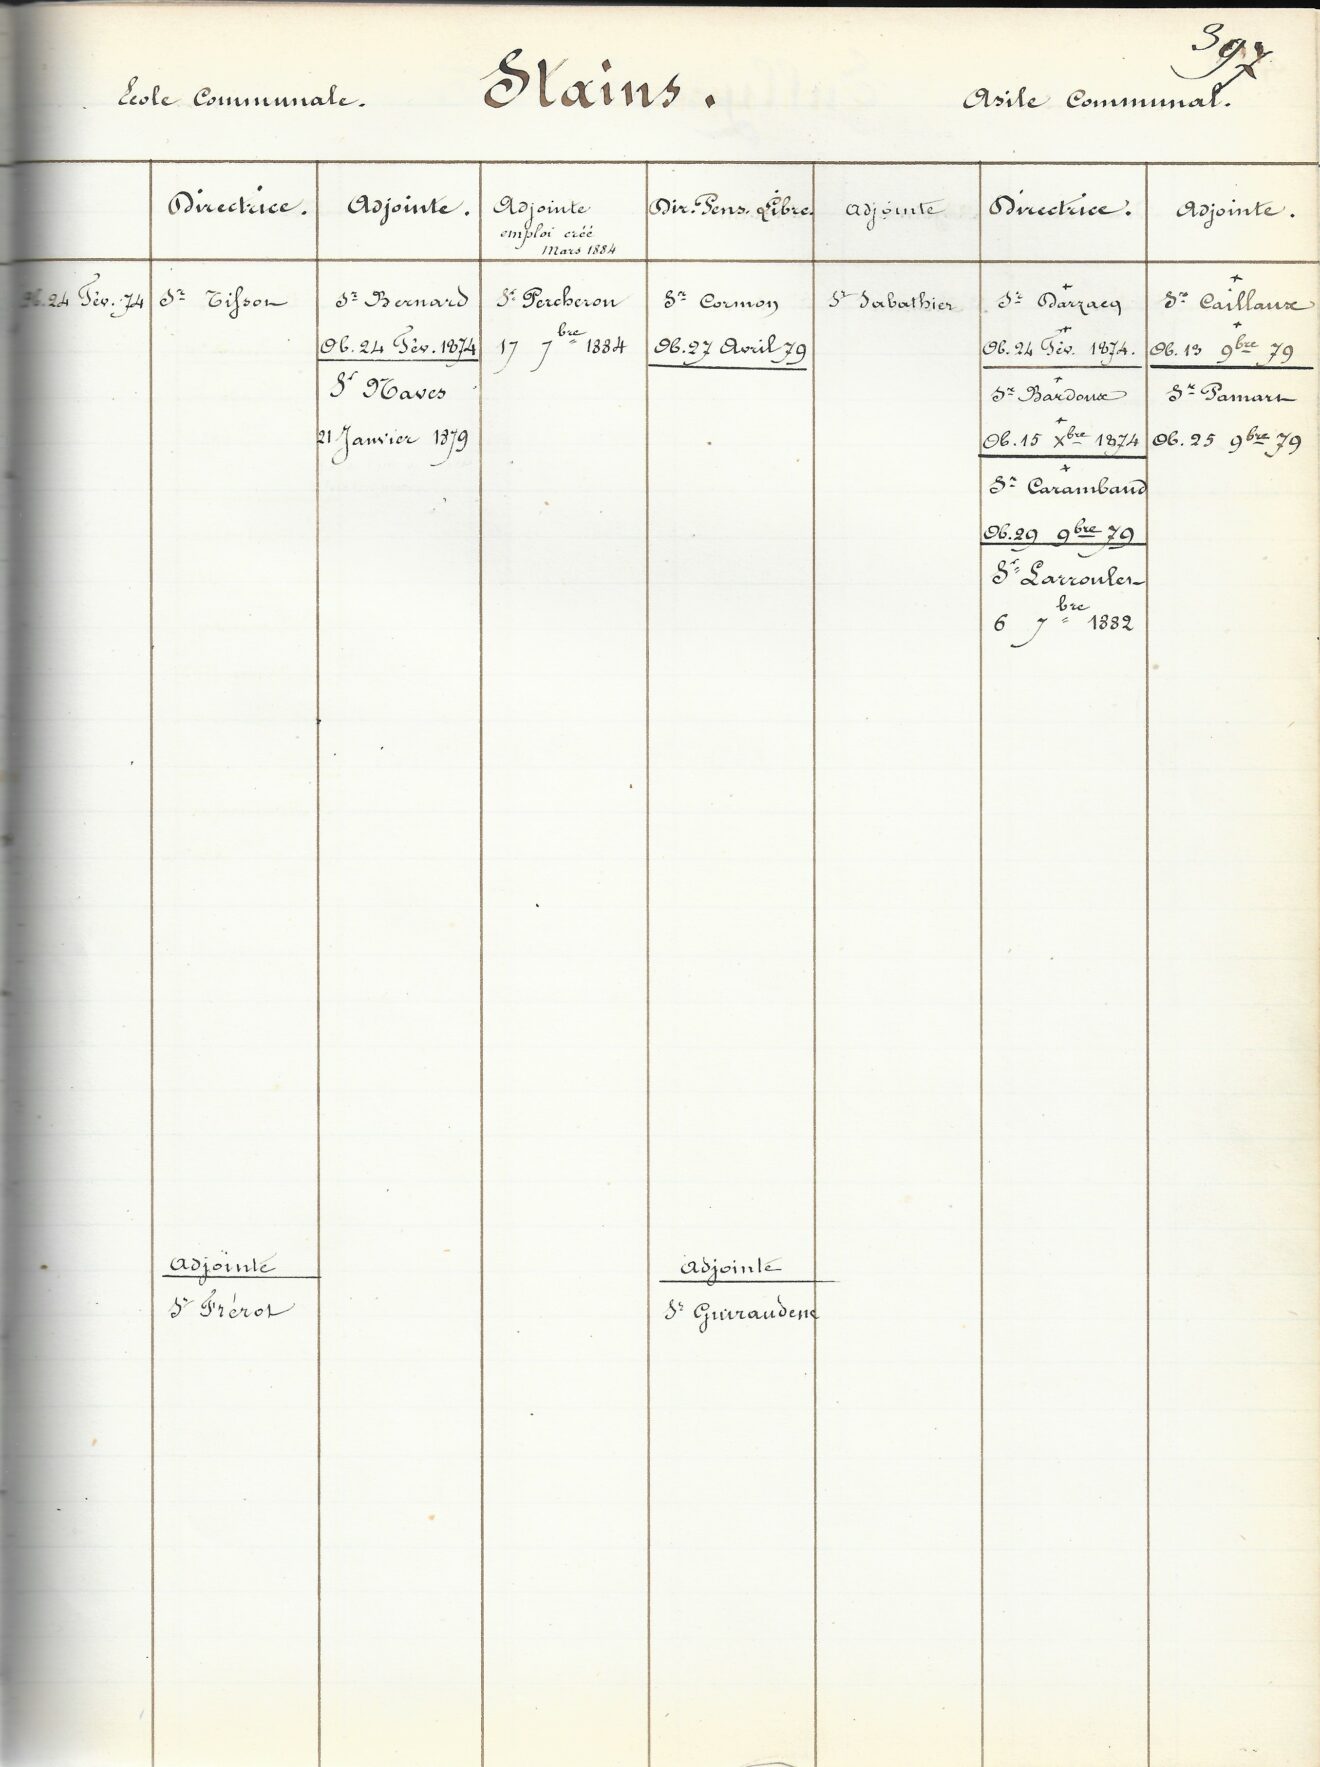 397
Ecole Communale. Stains. Asile Communal.
Directrice. Adjointe. Adjointe Dir. Pens. Libre. Adjointe Directrice. Adjointe.
emploi créé
Mars 1884
Ob. 24 Fév. 74 Sr Tisson Sr Bernard Sr Percheron Sr Cormon Sr Sabathier Sr Darzacq Sr Caillaux
Ob. 24 Fév. 1874 17 7bre 1884 Ob. 27 Avril 79 Ob. 24 Fév. 1874. Ob. 13 9bre 79
Sr Naves Sr Bardoux Sr Pamart
21 Janvier 1879 Ob. 15 Xbre 1874 Ob. 25 9bre 79
Sr Carambaud
Ob. 29 9bre 79
Sr Larroulet
6 7bre 1882
Adjointe Adjointe
Sr Frérot Sr Guiraudene